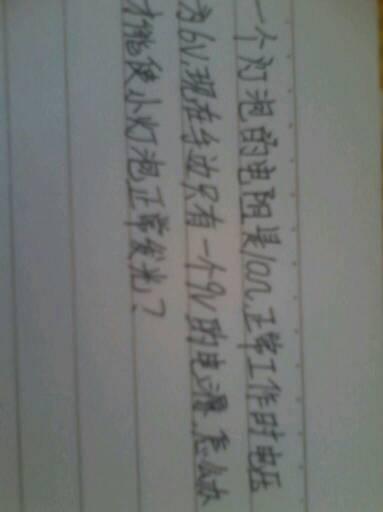 一个灯泡的电阻是10Ω,正常工作时电压
为6V,现在手边只有一个9V的电源,怎么办
才能使小灯泡正常发光?